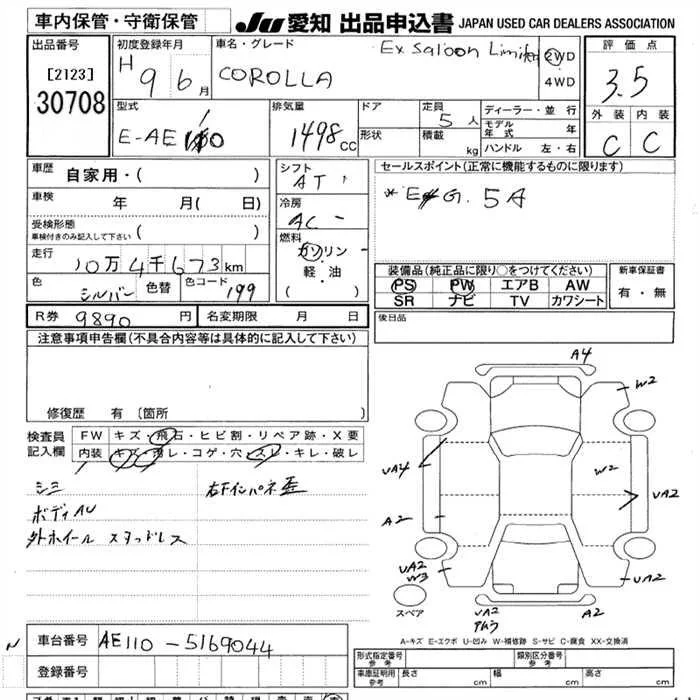 車内保管・守衛保管 JU 愛知 出品申込書 JAPAN USED CAR DEALERS ASSOCIATION
出品番号
[2123]
30708
初度登録年月
H 9 6月
車名・グレード
COROLLA Ex Saloon Limited
2WD
4WD
評価点
3.5
外装 内装
C C
型式
E-AE110
排気量
1498cc
ドア
形状
定員 5人
積載 kg
ディーラー・並行
モデル年式 年
ハンドル 左・右
車歴 自家用・( )
車検 年 月( 日)
受検形態
車検付きのみ記入して下さい ( )
走行 10万4千673km
色 シルバー 色替 色コード 199
シフト
AT
冷房
AC
燃料
ガソリン・
軽・油
( )
セールスポイント(正常に機能するものに限ります)
* E G. 5A
装備品(純正品に限り○をつけてください)
PS PW エアB AW
SR ナビ TV カワシート
新車保証書
有・無
R券 9890円 名変期限 月 日
後日品
注意事項申告欄(不具合内容等は具体的に記入して下さい)
修復歴 有 〔箇所 〕
検査員記入欄
FW キズ・飛石・ヒビ割・リペア跡・X要
内装 キズ・汚レ・コゲ・穴・スレ・キレ・破レ
シミ 右下インパネ歪
ボディAU
外ホイール スタッドレス
A4
W2
UA4
W2
UA2
A2
UA2
W3
UA2
スペア
UA2
A2
A-キズ E-エクボ U-凹み W-補修跡 S-サビ C-腐食 XX-交換済
車台番号 AE110-5169044
登録番号
形式指定番号
参考
類別区分番号
参考
車庫証明用
参考
長さ cm 幅 cm 高さ cm